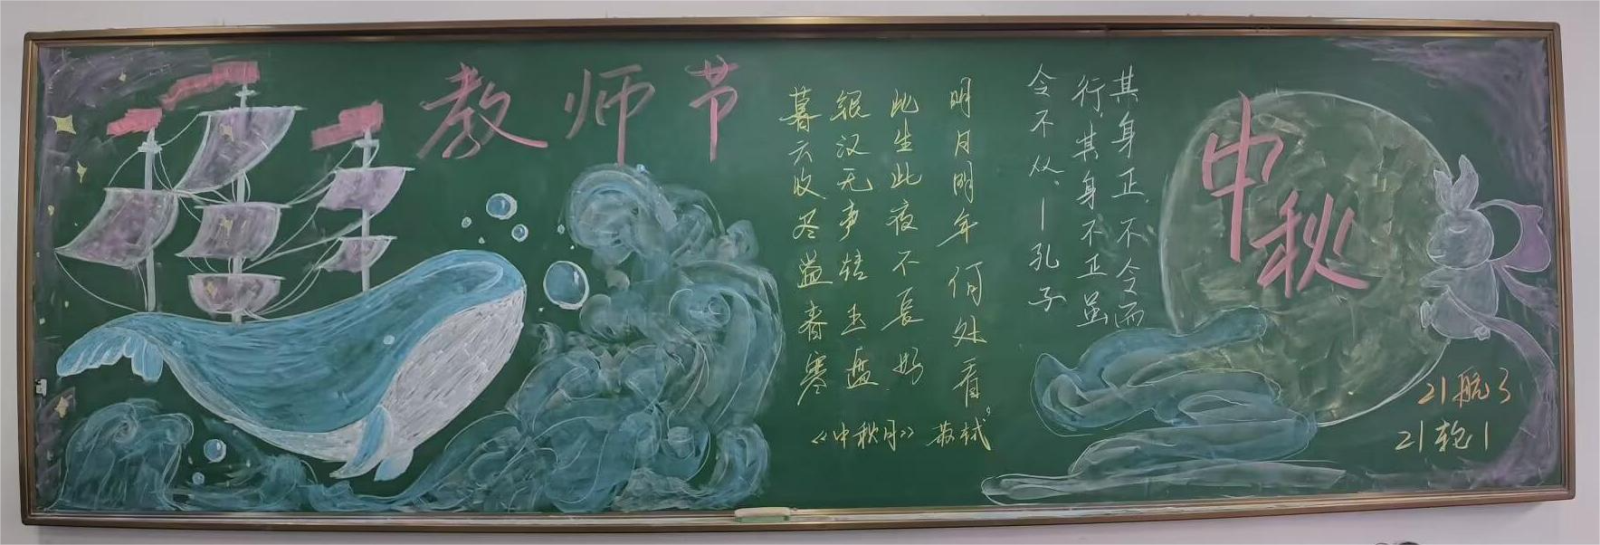 教师节
暮云收尽溢春寒
银汉无声转玉盘
此生此夜不长好
明月明年何处看。
《中秋月》 苏轼
其身正,不令而
行,其身不正虽
令不从,—孔子
中秋
21航3
21轮1